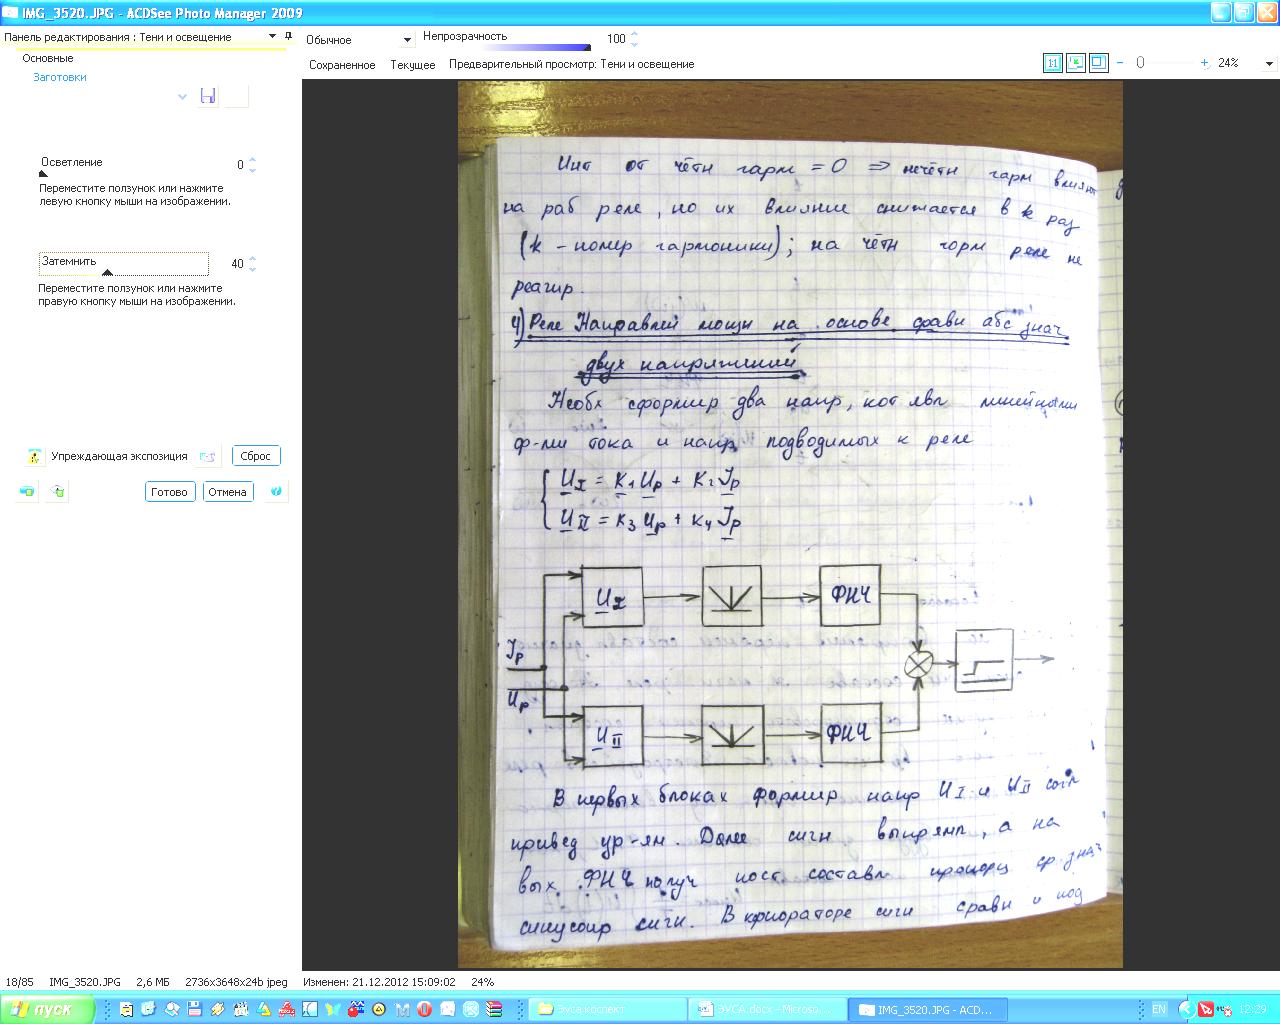 IMG_3520.JPG - ACDSee Photo Manager 2009
Панель редактирования : Тени и освещение
Обычное
Непрозрачность
100
Основные
Заготовки
Сохраненное Текущее Предварительный просмотр: Тени и освещение
24%
Осветление
0
Переместите ползунок или нажмите
левую кнопку мыши на изображении.
Затемнить
40
Переместите ползунок или нажмите
правую кнопку мыши на изображении.
Упреждающая экспозиция
Сброс
Готово
Отмена
Инт от чётн гарм = 0 ⇒ нечётн гарм влияют
на раб реле, но их влияние снижается в k раз
(k - номер гармоники); на чётн гарм реле не
реагир.
4) Реле Направлен мощн на основе сравн абс знач
двух напряжений
Необх сформир два напр, кот явл линейными
ф-ми тока и напр подводимых к реле
U I = K1 Uр + K2 Iр
U II = K3 Uр + K4 Iр
U I
ФНЧ
Iр
Uр
U II
ФНЧ
В первых блоках формир напр U I и U II согл
привед ур-ям. Далее сигн выпрямл, а на
вых ФНЧ получ пост составл пропорц ср. знач
синусоир сигн. В сигн сравн и под
18/85 IMG_3520.JPG 2,6 МБ 2736x3648x24b jpeg Изменен: 21.12.2012 15:09:02 24%
пуск
Эуса колект
ЭУСА.docx - Microso...
IMG_3520.JPG - ACD...
EN
12:29